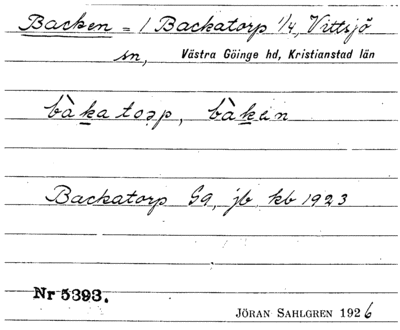 Backen = / Backatorp 1/4, Vittsjö
sn, Västra Göinge hd, Kristianstad län
bàka torp, bàkan
Backatorp Gg, jb kb 1923
Nr 5393.
JÖRAN SAHLGREN 1926